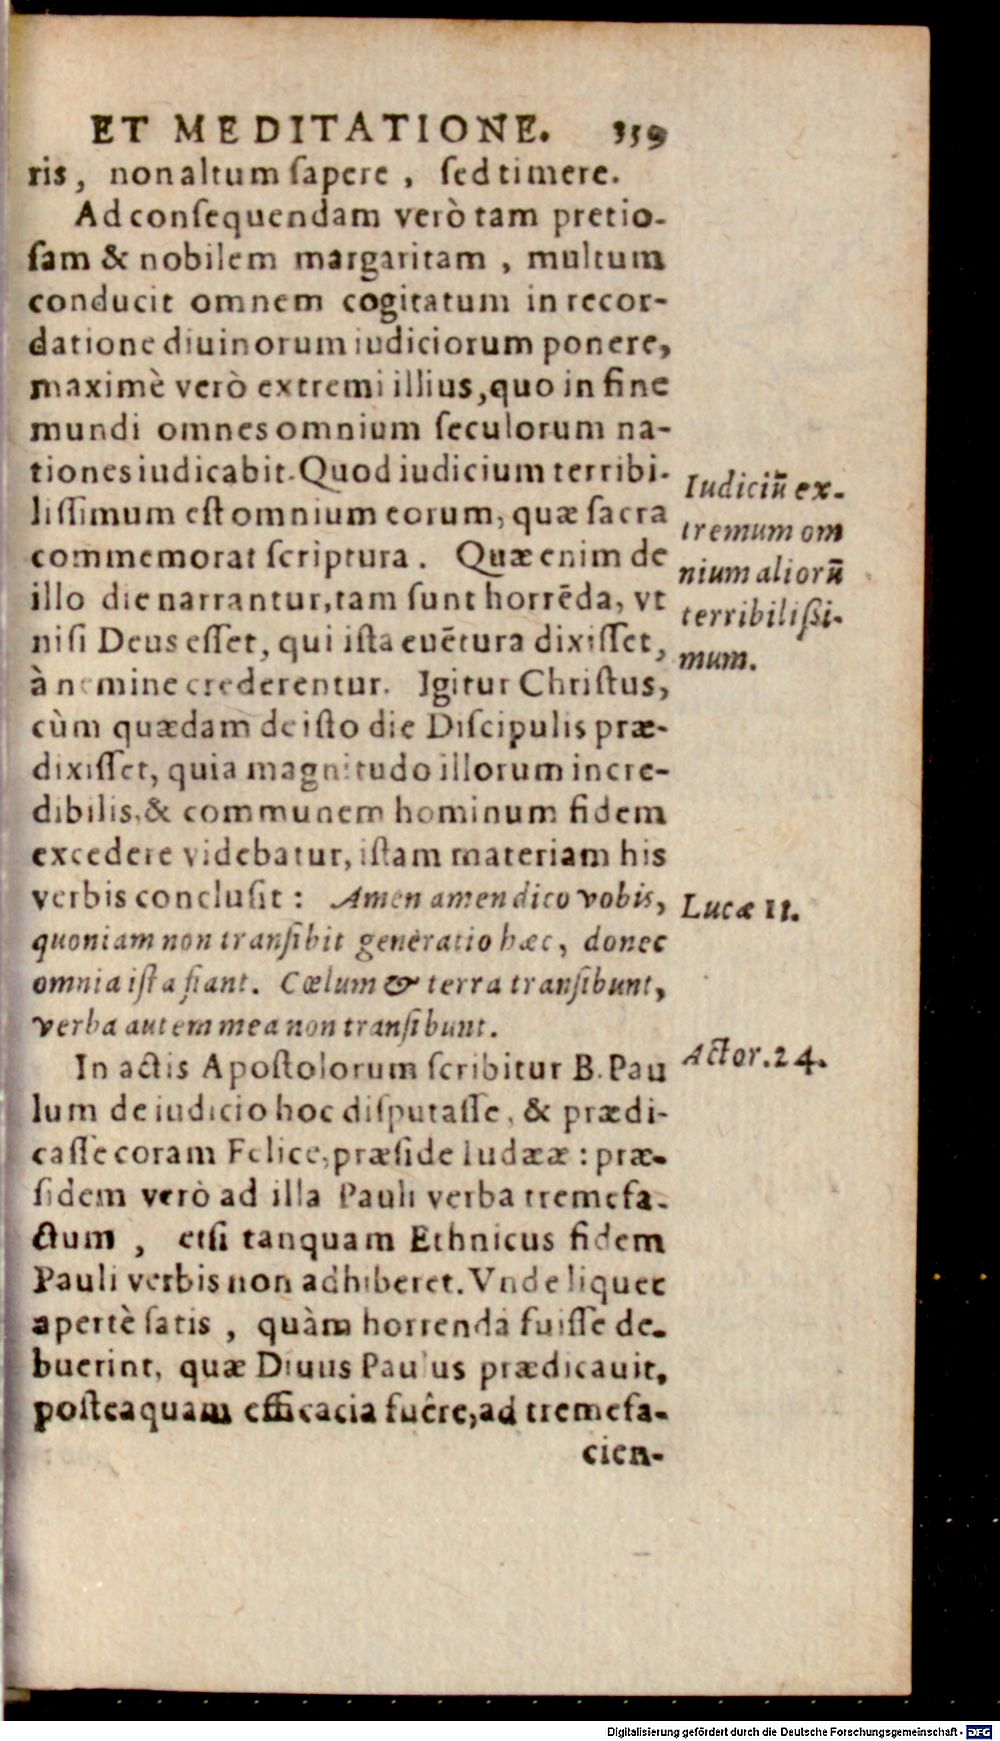 ET MEDITATIONE. 359
ris, non altum sapere, sed timere.
Ad consequendam verò tam pretio-
sam & nobilem margaritam, multum
conducit omnem cogitatum in recor-
datione diuinorum iudiciorum ponere,
maximè verò extremi illius, quo in fine
mundi omnes omnium seculorum na-
tiones iudicabit. Quod iudicium terribi-
lissimum est omnium eorum, quæ sacra
commemorat scriptura. Quæ enim de
illo die narrantur, tam sunt horrēda, vt
nisi Deus esset, qui ista euētura dixisset,
à nemine crederentur. Igitur Christus,
cùm quædam de isto die Discipulis præ-
dixisset, quia magnitudo illorum incre-
dibilis, & communem hominum fidem
excedere videbatur, istam materiam his
verbis conclusit: Amen amen dico vobis,
quoniam non transibit generatio hæc, donec
omnia ista fiant. Cœlum & terra transibunt,
verba autem mea non transibunt.
In actis Apostolorum scribitur B. Pau
lum de iudicio hoc disputasse, & prædi-
casse coram Felice, præside Iudææ: præ-
sidem verò ad illa Pauli verba tremefa-
ctum, etsi tanquam Ethnicus fidem
Pauli verbis non adhiberet. Vnde liquet
apertè satis, quàm horrenda fuisse de-
buerint, quæ Diuus Paulus prædicauit,
posteaquam efficacia fuêre, ad tremefa-
cien-
Iudiciū ex-
tremum om
nium aliorū
terribilissi-
mum.
Lucæ 21.
Actor. 24.
Digitalisierung gefördert durch die Deutsche Forschungsgemeinschaft - DFG